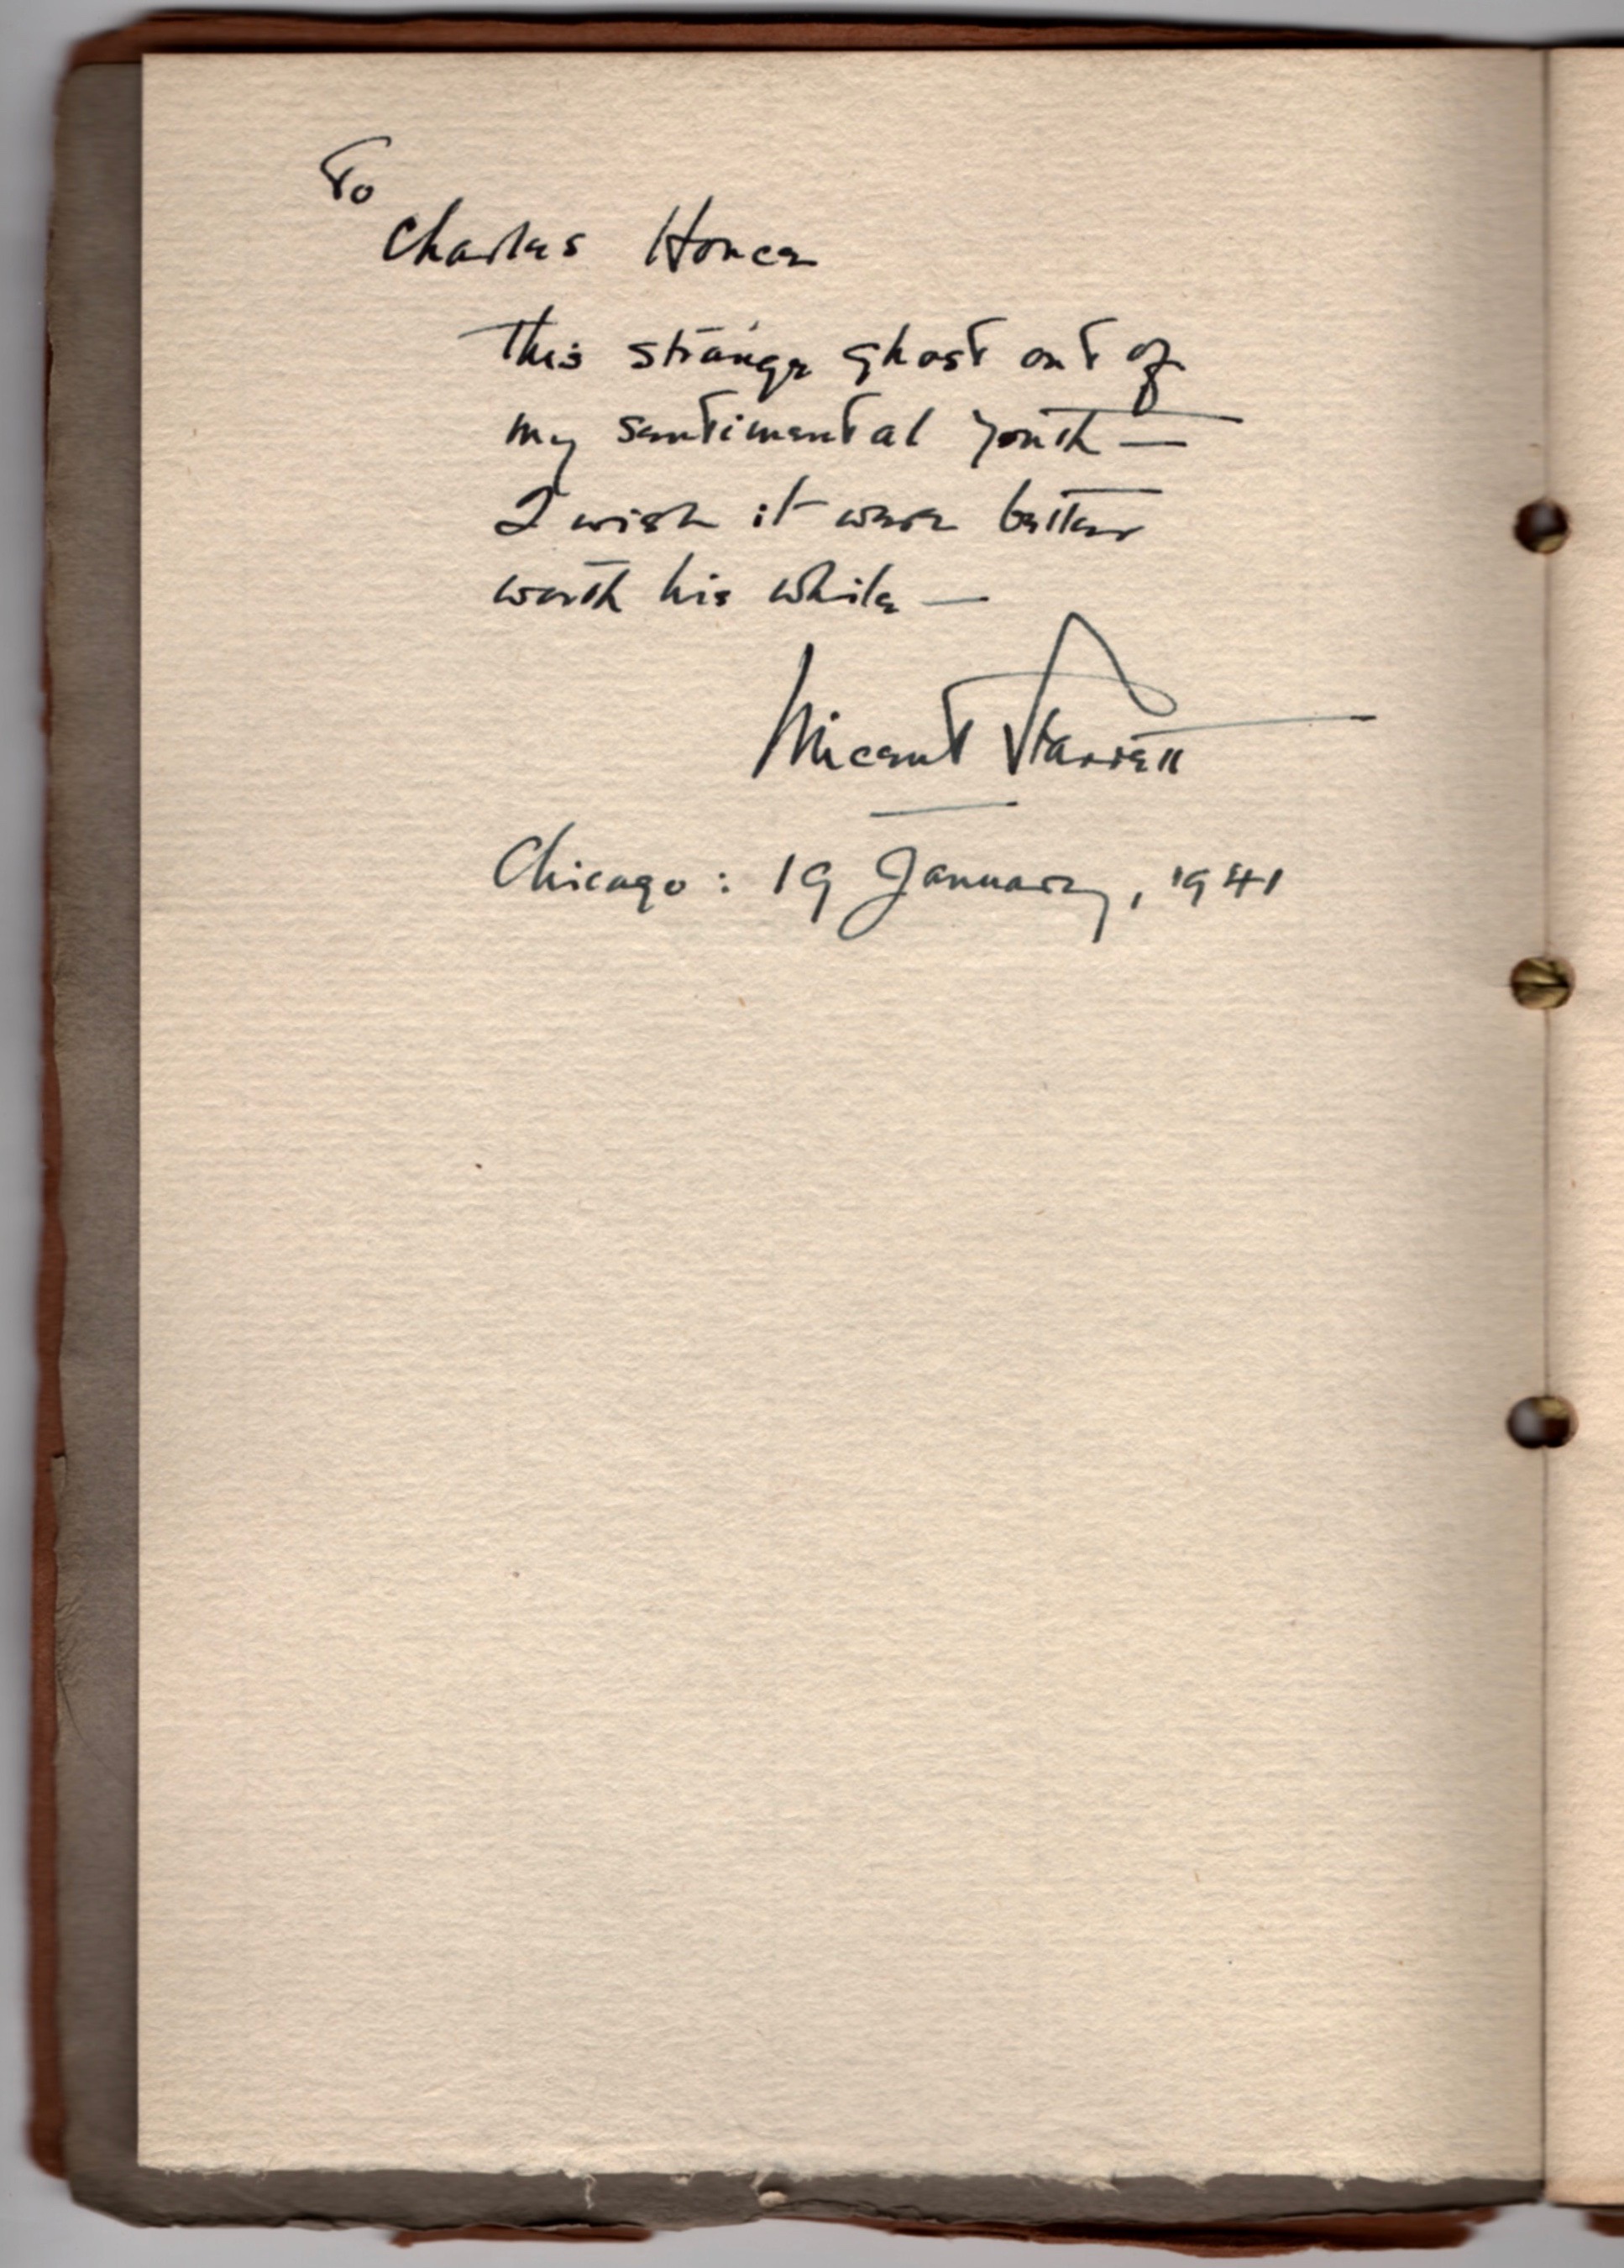 To
Charles Honce
This strange ghost out of
my sentimental youth —
I wish it were better
worth his while —
Vincent Starrett
Chicago: 19 January, 1941